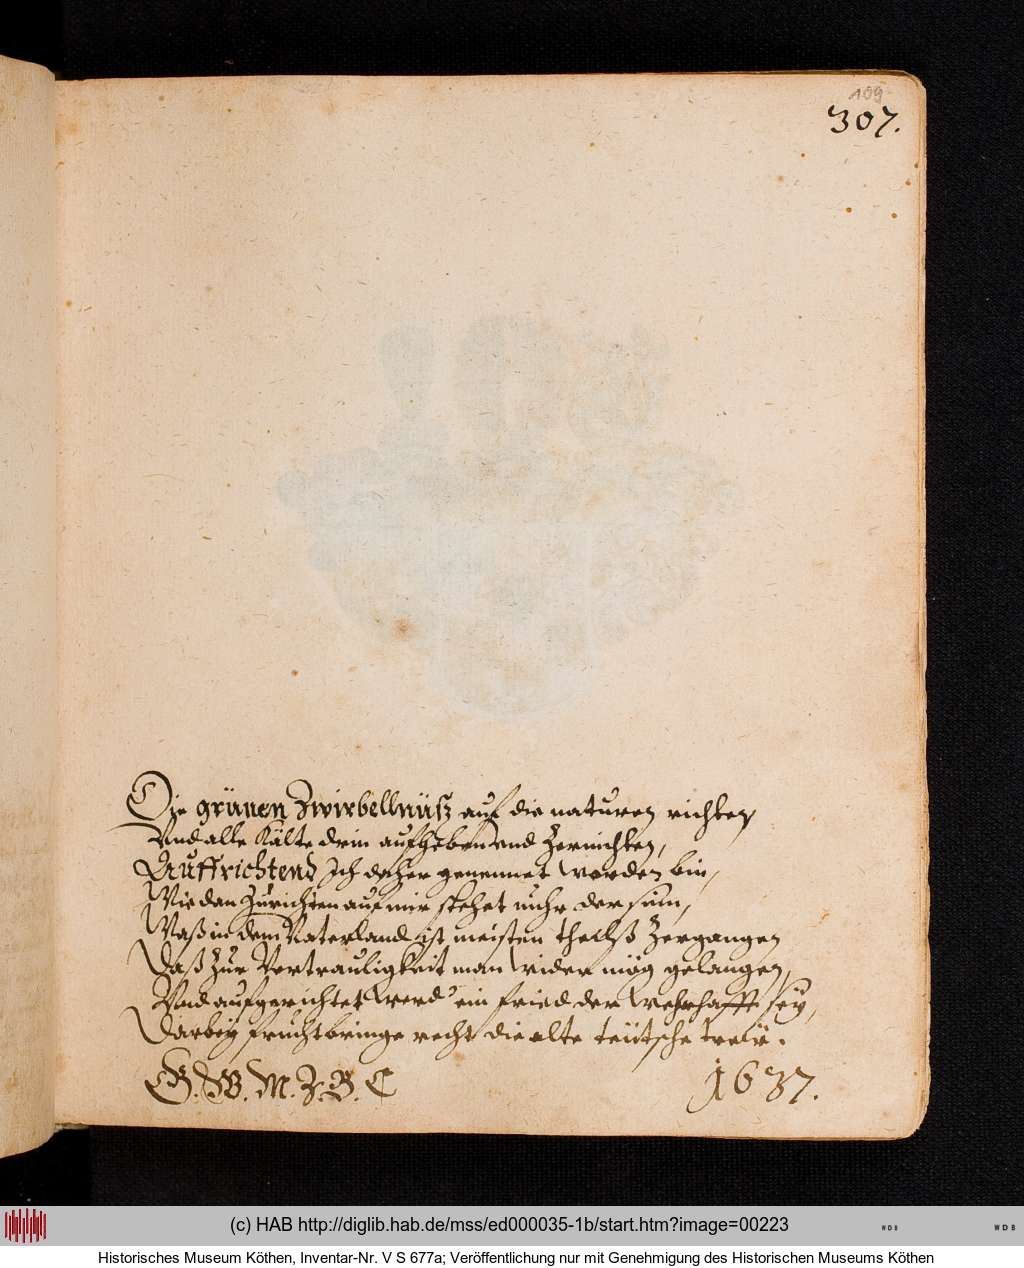 109
307.
Die grünen Zwirbellnüsz auf die naturen richten
Und alle Kälte drin aufheben und Zernichten,
Auffrichtend Ich daher genennet worden bin,
Wie dan Zurichten auf mir stehet mihr der sinn,
Waß in dem Vaterland ist meisten theilß Zergangen
Daß Zur Vertrauligkeit man wider mög gelangen,
Und aufgerichtet werd' ein fried der wehrhafft sey,
Darbey fruchtbringe recht die alte teütsche treü.
G. W. M. Z. B. C
1637.
(c) HAB http://diglib.hab.de/mss/ed000035-1b/start.htm?image=00223
WDB
WDB
Historisches Museum Köthen, Inventar-Nr. V S 677a; Veröffentlichung nur mit Genehmigung des Historischen Museums Köthen